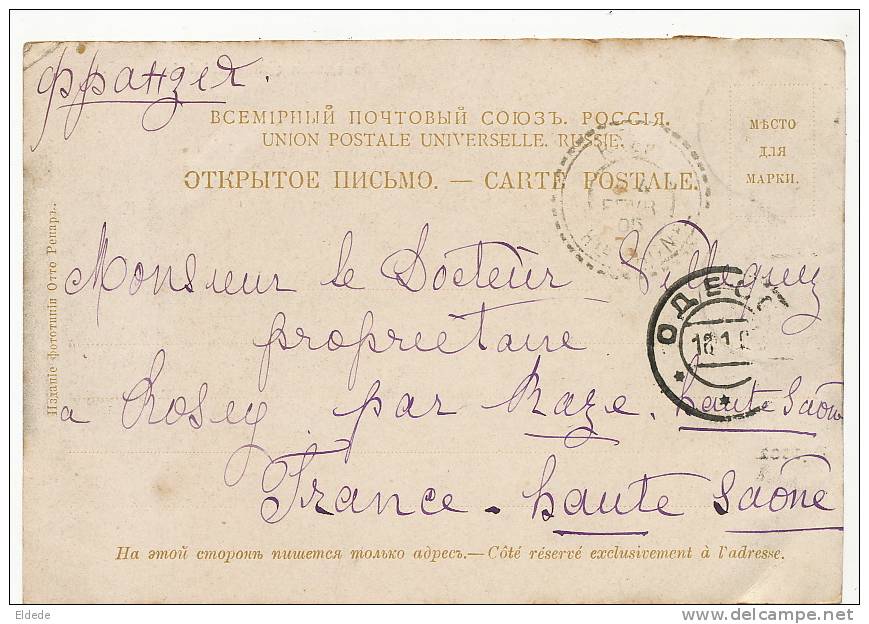 Франція.
ВСЕМІРНЫЙ ПОЧТОВЫЙ СОЮЗЪ. РОССІЯ.
UNION POSTALE UNIVERSELLE. RUSSIE.
ОТКРЫТОЕ ПИСЬМО. — CARTE POSTALE.
МѢСТО
ДЛЯ
МАРКИ.
FEVR
06
Изданіе фототипіи Отто Ренаръ.
Monsieur le Docteur
propriétaire
ОДЕССА
18 1
a Rosey par Raze. haute Saône
France. haute Saône
На этой сторонѣ пишется только адресъ.—Côté réservé exclusivement à l'adresse.
Eldede
delcampe.net